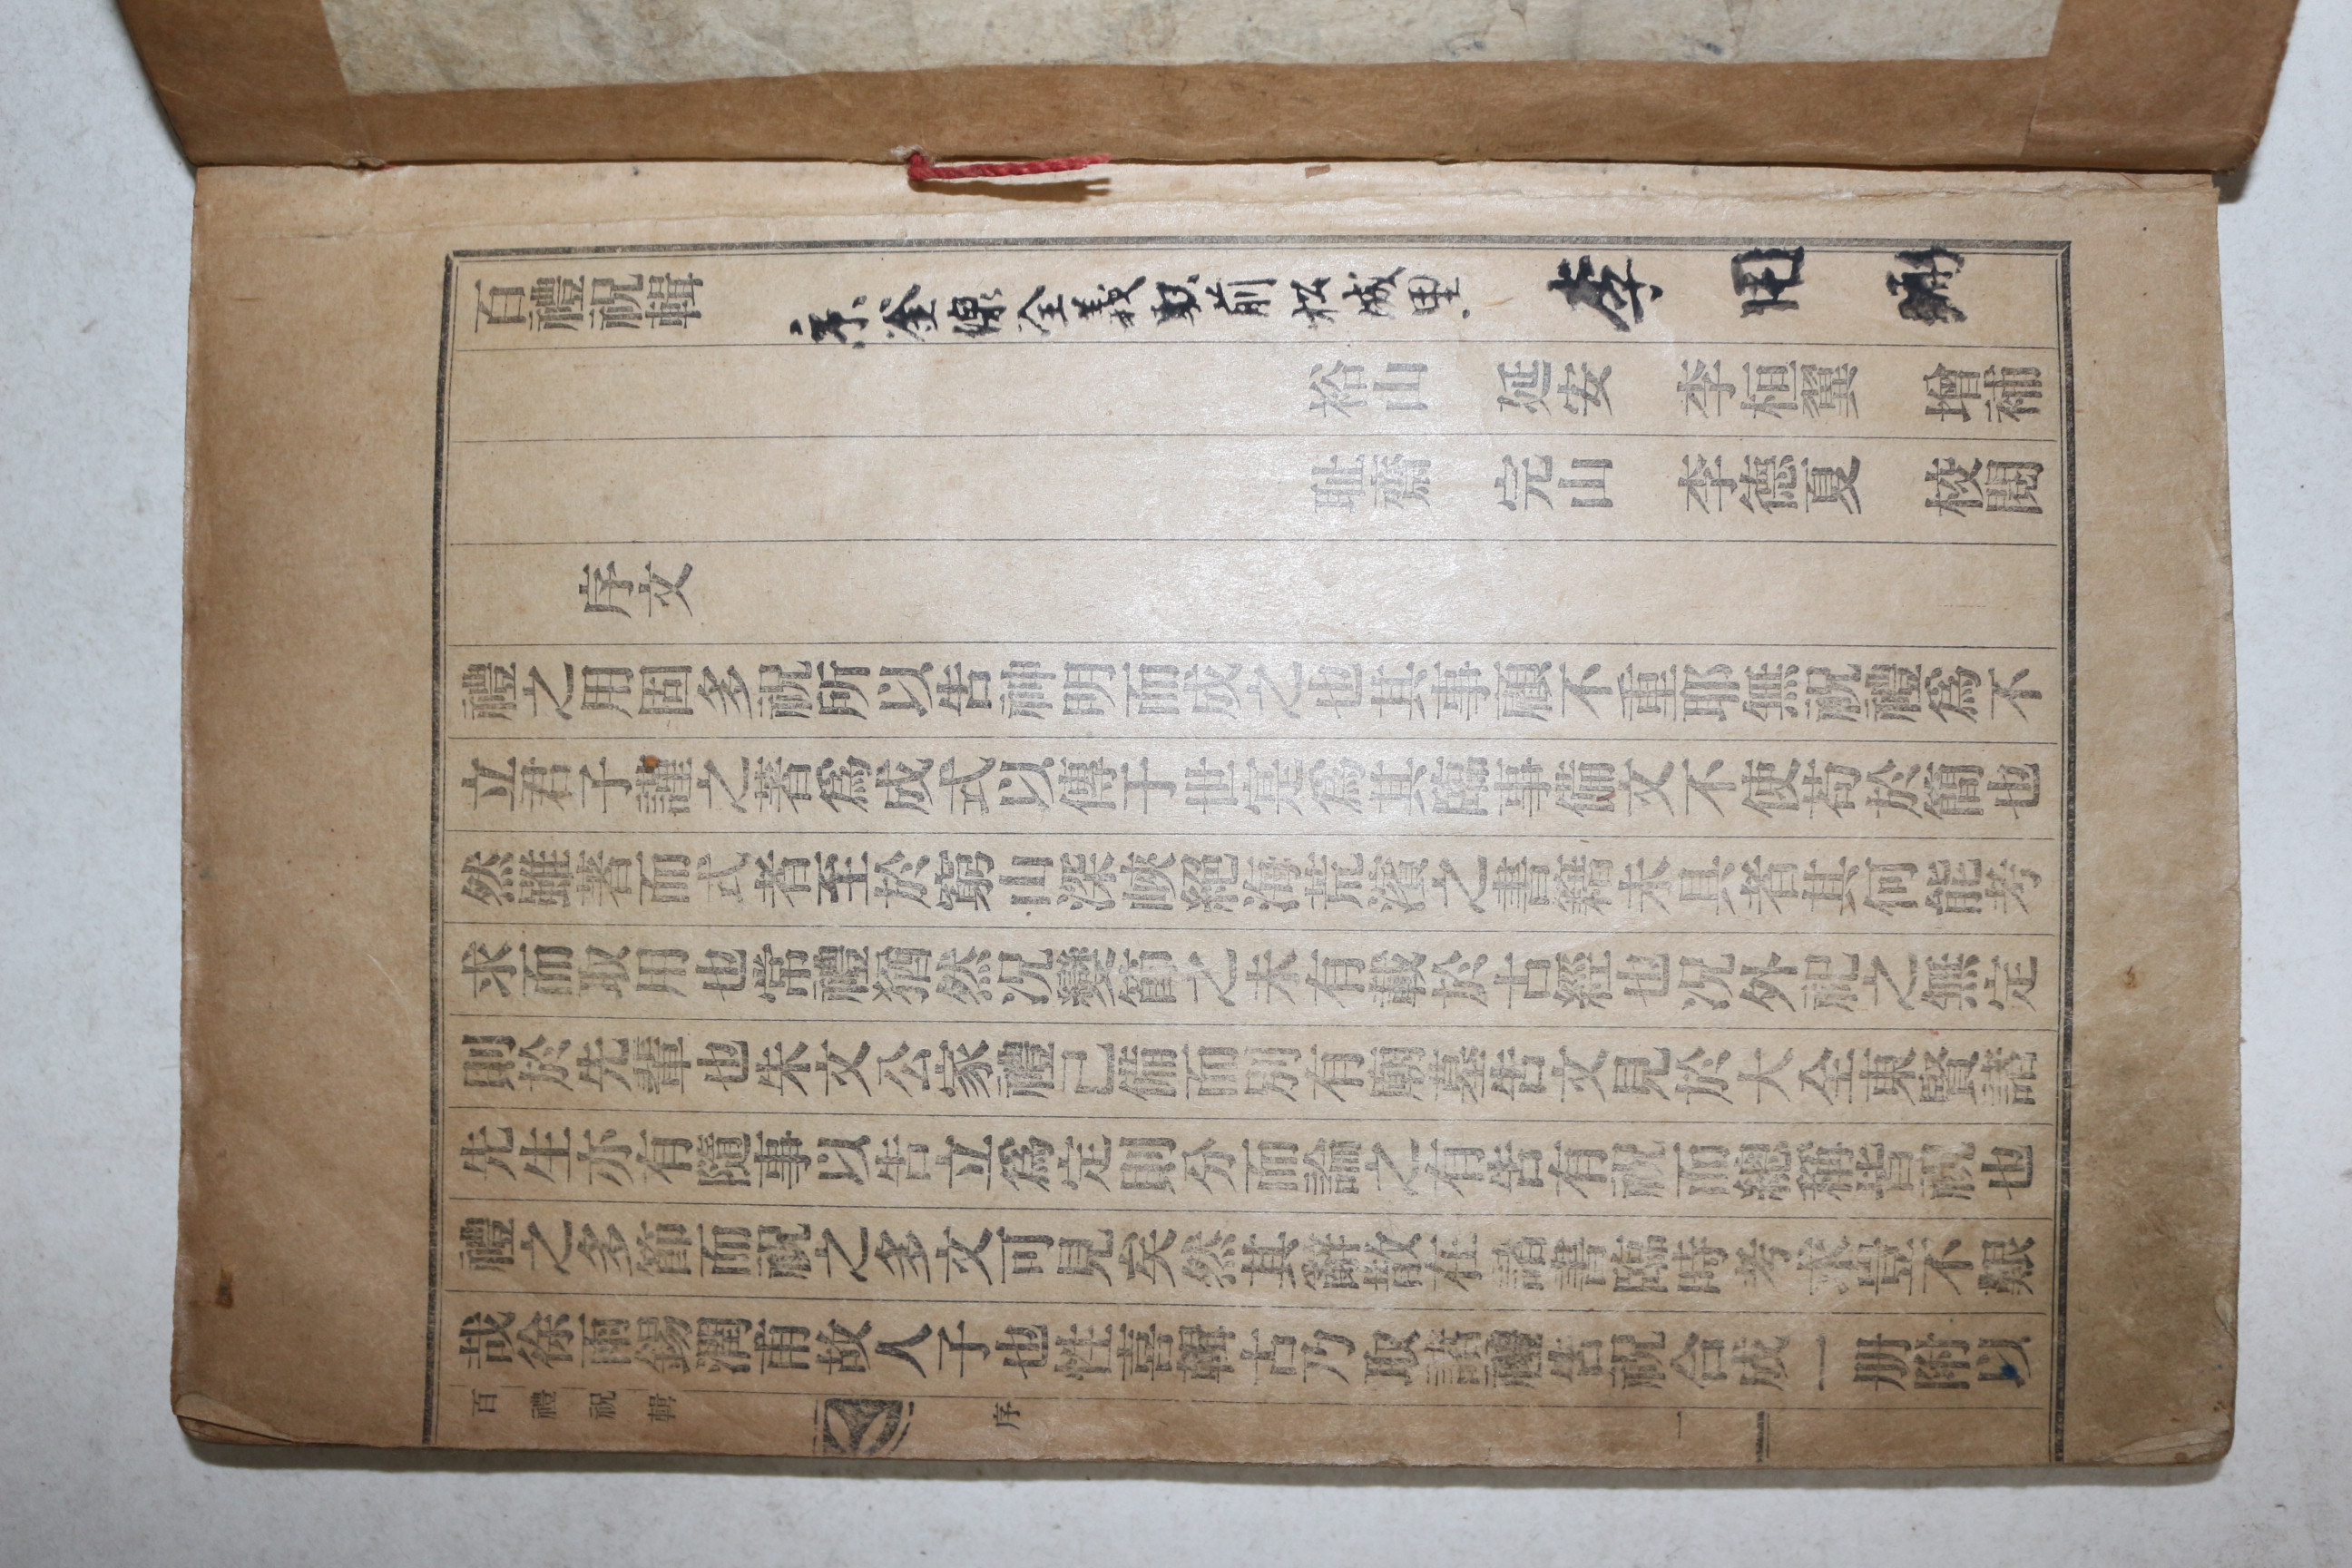 百禮祝輯 京釜線全義駅前松城里 李用
裕山 延安 李桓翼 增補
耻齋 完山 李德夏 校閱
序文
禮之用固多祝所以告神明而成之也其事顧不重耶無祝禮爲不
立君子謹之著爲成式以傳于世寔爲其臨事備文不使苟於簡也
然雖著而式者至於窮山深峽絕海荒濱之書籍未具者其何能考
求而取用也常禮猶然况變節之未有載於古經也况外祀之無定
則於先輩也朱文公家禮已備而別有廟墓告文見於大全東賢諸
先生亦有隨事以告立爲定則分而論之有告有祝而總稱皆祝也
禮之多節而祝之多文可見矣然其辭散在諸書臨時考求豈不艱
哉徐雨錫潤甫故人子也性喜輯古乃取諸禮告祝合成一册附以
百禮祝輯 序 一